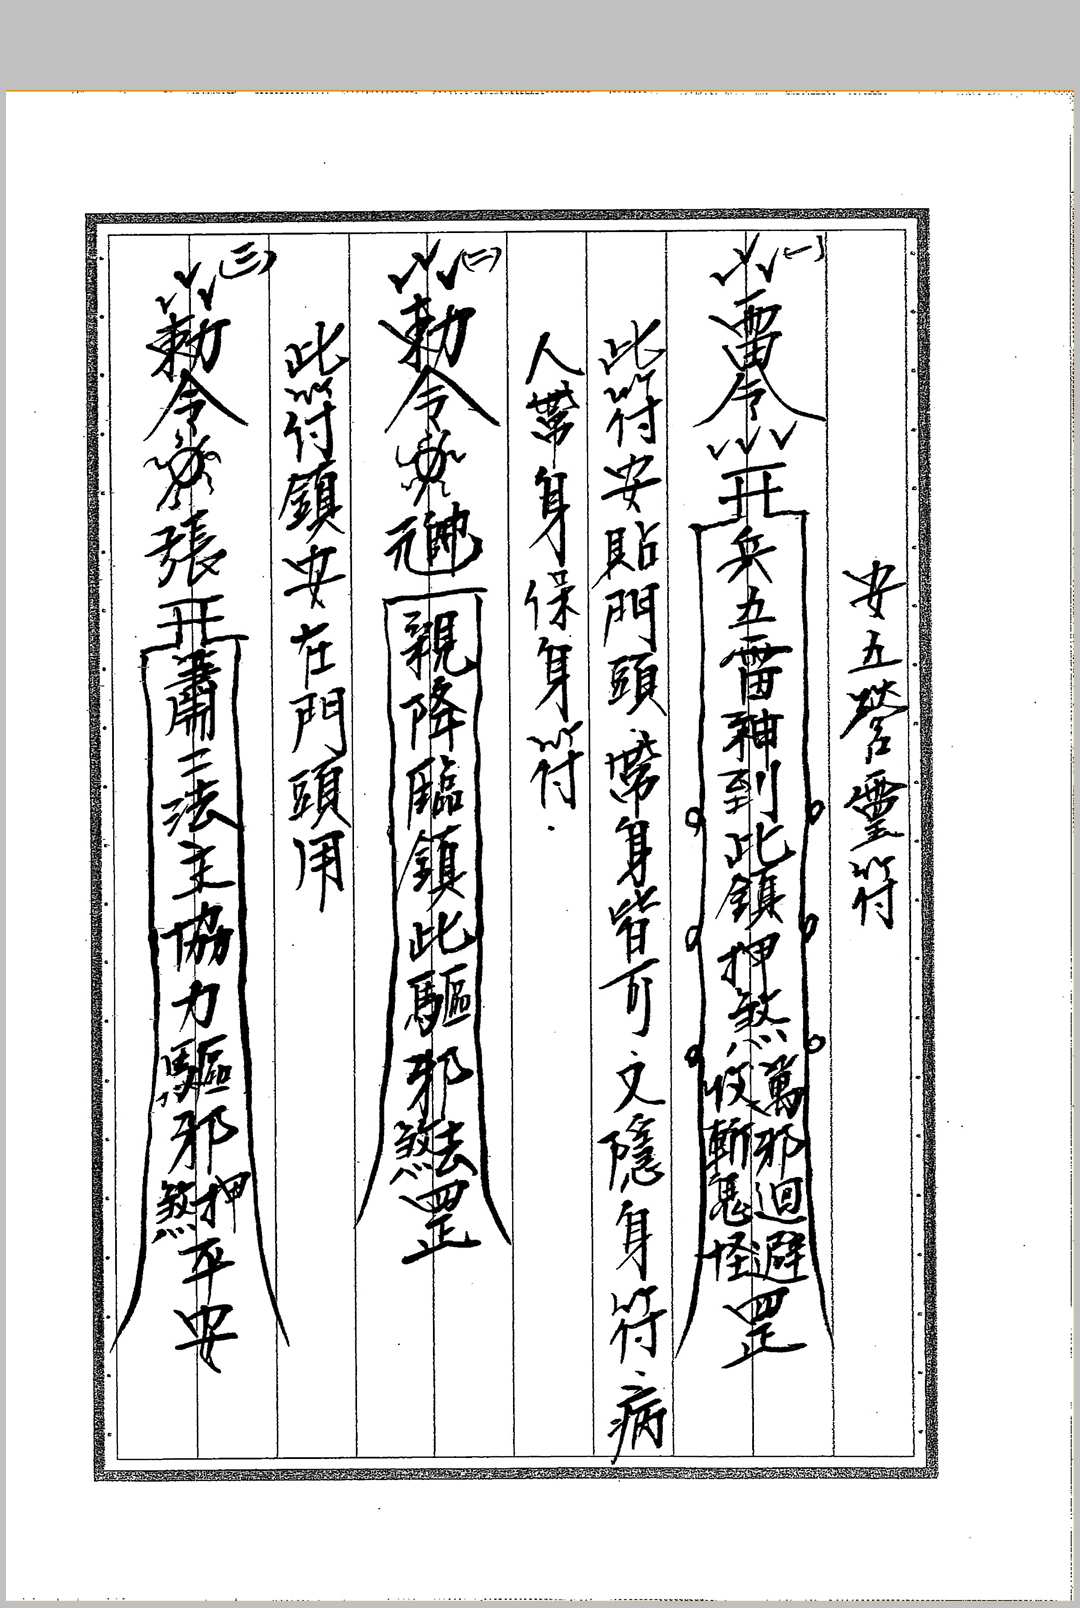 安五營靈符
(一)
雷令
兵五雷神到此鎮押煞
萬邪迴避
收斬鬼怪
罡
此符安貼門頭、帶身皆可、又隱身符、病
人帶身保身符.
(二)
勅令
親降臨鎮此驅邪
法
煞
罡
此符鎮安在門頭用
(三)
勅令
張
蕭二法主協力驅邪
押
煞
平安